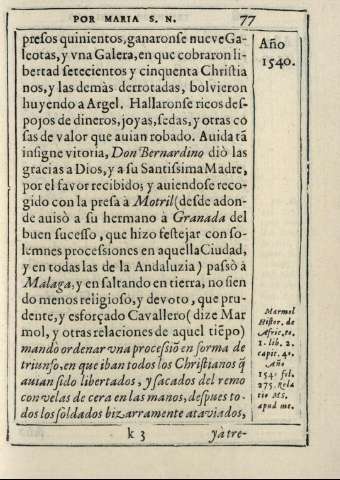 POR MARIA S. N. 77
presos quinientos, ganaronse nueve Ga-
leotas, y vna Galera, en que cobraron li-
bertad setecientos y cinquenta Christia
nos, y las demàs derrotadas, bolvieron
huyendo a Argel. Hallaronse ricos des-
pojos de dineros, joyas, sedas, y otras co
sas de valor que auian robado. Auida tã
insigne vitoria, Don Bernardino diò las
gracias a Dios, y a su Santissima Madre,
por el favor recibido; y auiendose reco-
gido con la presa à Motril (desde adon-
de auisò a su hermano à Granada del
buen sucesso, que hizo festejar con so-
lemnes processiones en aquella Ciudad,
y en todas las de la Andaluzia) passò à
Malaga, y en saltando en tierra, no sien
do menos religioso, y devoto, que pru-
dente, y esforçado Cavallero (dize Mar
mol, y otras relaciones de aquel tiẽpo)
mandò ordenar vna processiõ en forma de
triunfo, en que iban todos los Christianos q̃
auian sido libertados, y sacados del remo
con velas de cera en las manos, despues to-
dos los soldados bizarramente ataviados,
k 3 ya tre-
Año
1540.
Marmol
Histor. de
Afric. to.
1. lib. 2.
capit. 40.
Año
154. fol.
275. Rela
tio MS.
apud me.